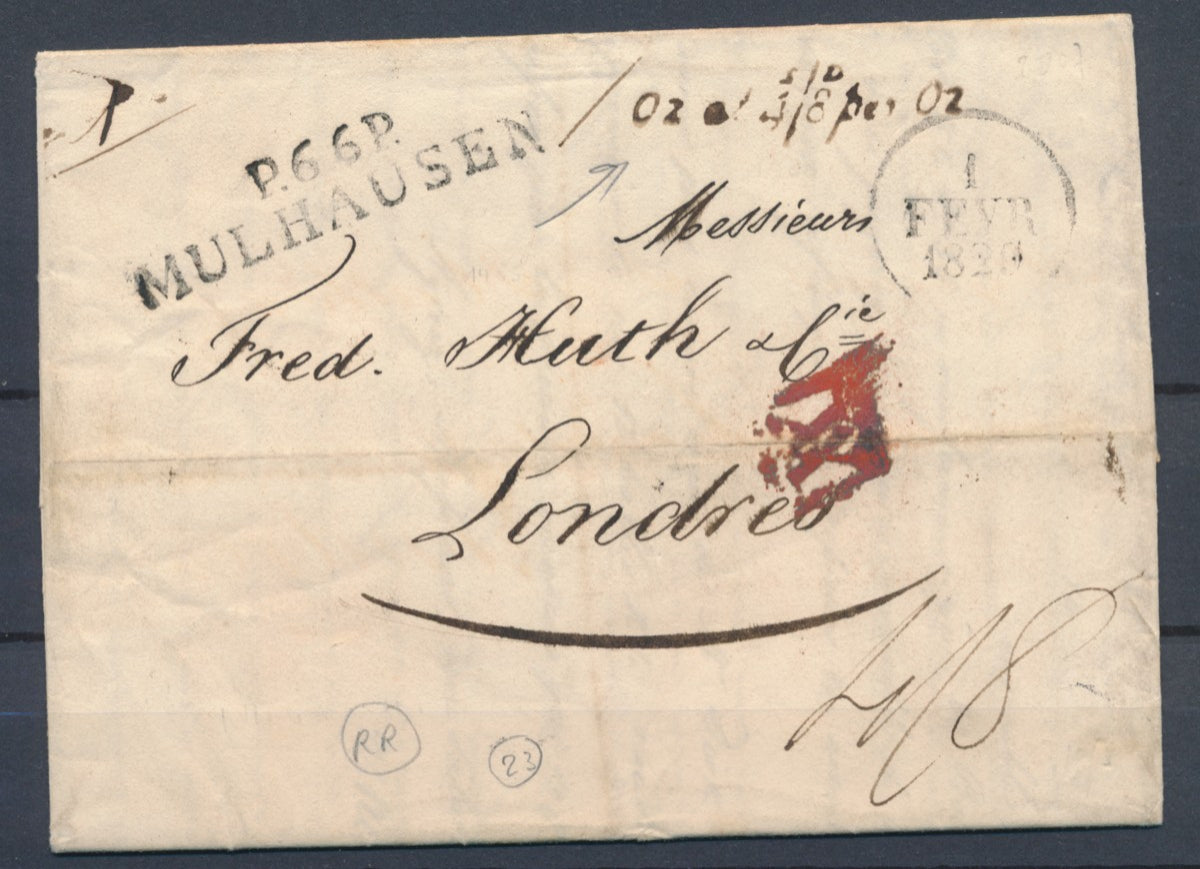 P.
P.66P.
MULHAUSEN
S/D
/ Oz at 4/8 per Oz
1
FEVR
1829
Messieurs
Fred. Huth & Cie
Londres
4/8
RR
23